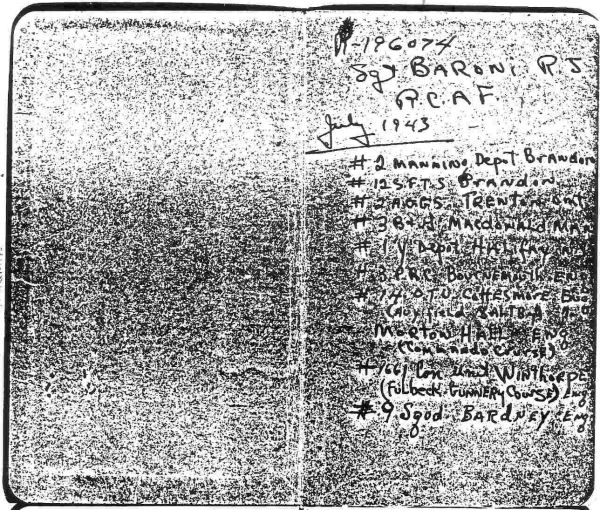 R-196074
Sgt BARONI R.J.
R.C.A.F.
July 1943
# 2 MANNING Depot BRANDON
# 12 S.F.T.S. BRANDON
# 2 A.G.G.S. TRENTON Ont
# 3 B&G MACDONALD MAN
# 1 Y Depot HALIFAX
# 3 P.R.C. BOURNEMOUTH ENG
# 14 O.T.U. COTTESMORE Eng
field SALTBY
MORTON HALL ENG
(Commando Course)
# 1661 Con Unit WINTHORPE
(Fulbeck GUNNERY COURSE) Eng
# 9 Sqod. BARDNEY Eng